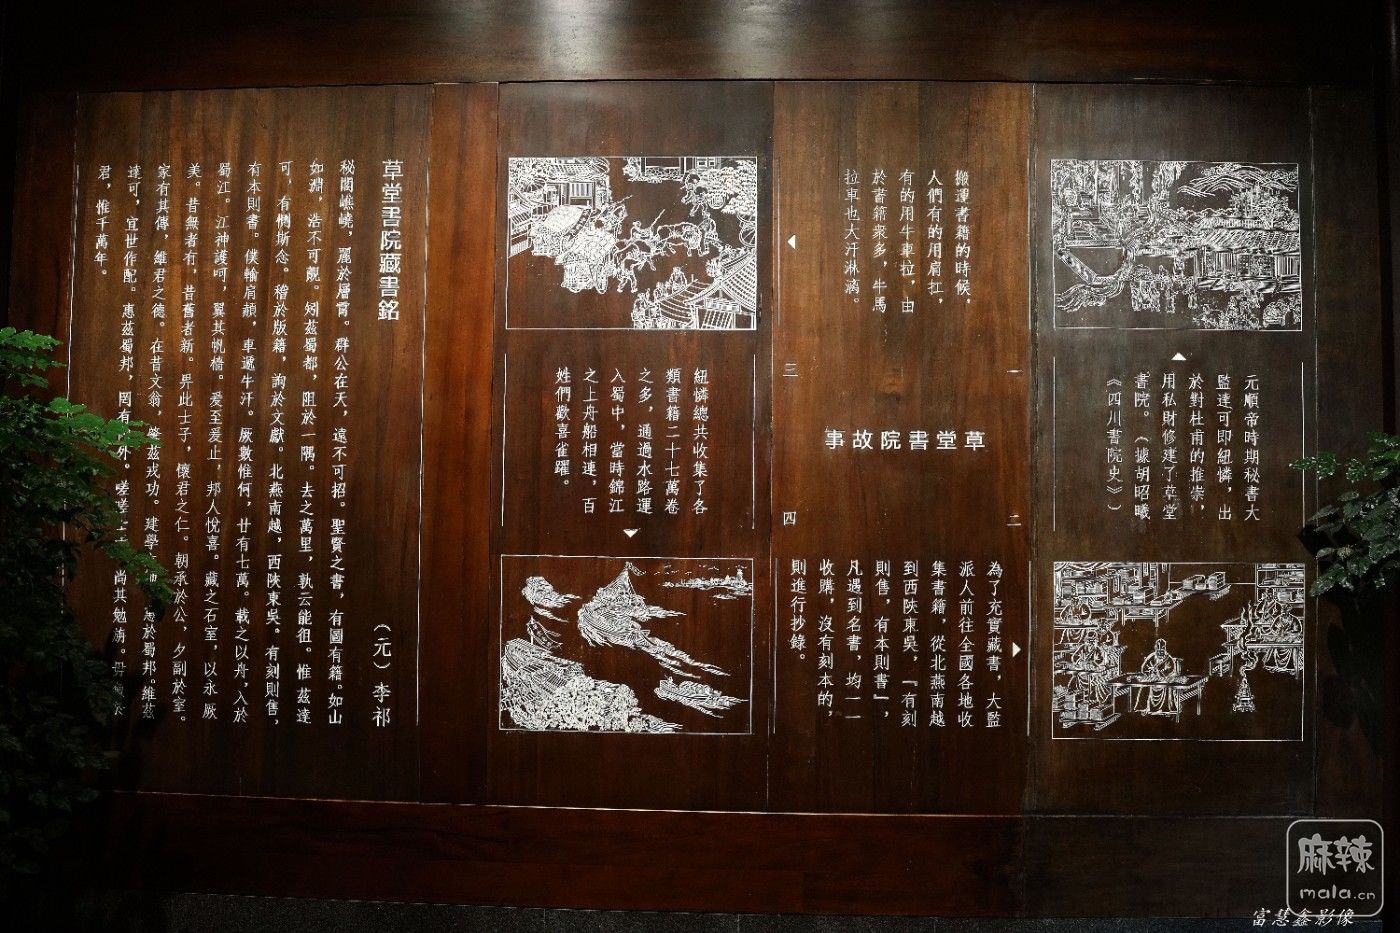 草堂書院故事
一
元順帝時期秘書大
監達可即紐憐，出
於對杜甫的推崇，
用私財修建了草堂
書院。（據胡昭曦
《四川書院史》）
二
為了充實藏書，大監
派人前往全國各地收
集書籍，從北燕南越
到西陝東吳，「有刻
則售，有本則書」，
凡遇到名書，均一一
收購，沒有刻本的，
則進行抄錄。
三
搬運書籍的時候，
人們有的用肩扛，
有的用牛車拉，由
於書籍衆多，牛馬
拉車也大汗淋漓。
四
紐憐總共收集了各
類書籍二十七萬卷
之多，通過水路運
入蜀中，當時錦江
之上舟船相連，百
姓們歡喜雀躍。
草堂書院藏書銘
（元）李祁
秘閣嶕嶢，麗於層霄。群公在天，遠不可招。聖賢之書，有圖有籍。如山
如淵，浩不可覷。矧茲蜀都，阻於一隅。去之萬里，孰云能徂。惟茲達
可，有惻斯念。稽於版籍，詢於文獻。北燕南越，西陝東吳。有刻則售，
有本則書。僕輸肩赬，車遞牛汗。厥數惟何，廿有七萬。載之以舟，入於
蜀江。江神護呵，翼其帆檣。爰至爰止，邦人悅喜。藏之石室，以永厥
美。昔無者有，昔舊者新。畀此士子，懷君之仁。朝承於公，夕副於室。
家有其傳，維君之德。在昔文翁，肇茲戎功。建學 惠於蜀邦。維茲
達可，宜世作配。惠茲蜀邦，罔有 外。嗟嗟 尚其勉旃。毋
君，惟千萬年。
麻辣
mala.cn
富慧鑫影像